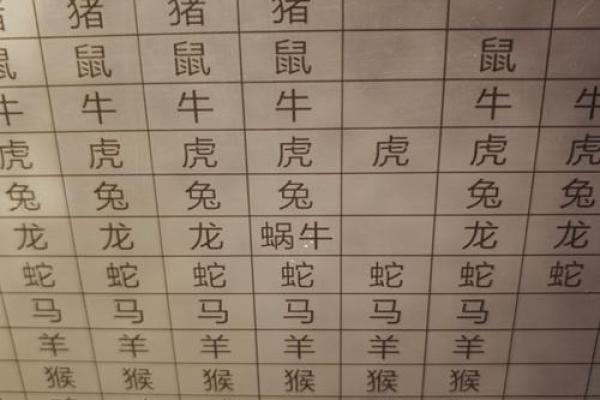 猪 猪 猪
鼠 鼠 鼠 鼠 鼠
牛 牛 牛 牛 牛 牛
虎 虎 虎 虎 虎 虎 虎
兔 兔 兔 兔 兔 兔
龙 龙 龙 蜗牛 龙 龙
蛇 蛇 蛇 蛇 蛇 蛇 蛇
马 马 马 马 马 马
羊 羊 羊 羊 羊 羊
猴 猴 猴 猴 猴 猴